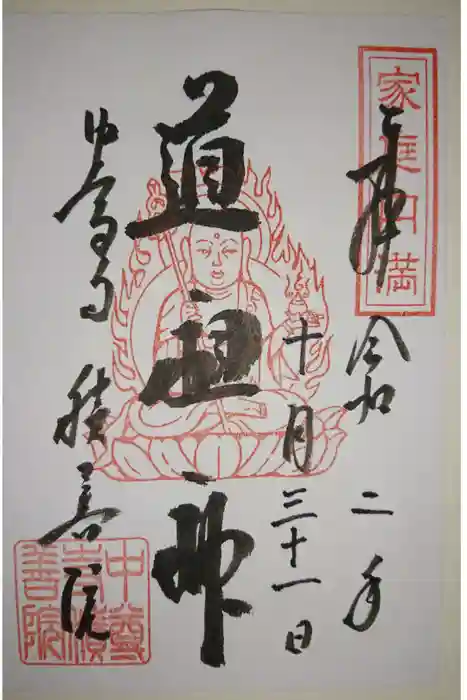 家庭円満
令和二年
十月三十一日
道祖神
中尊寺 積善院
中尊
寺積
善院